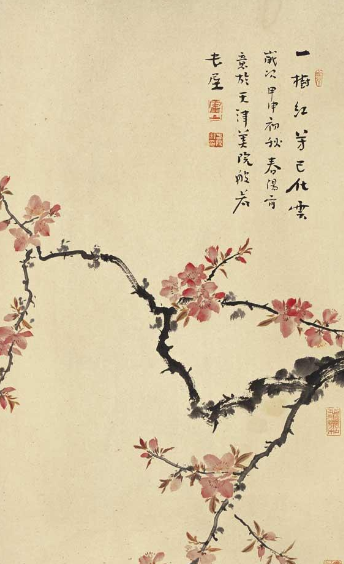 一樹紅芳已化雲
歲次甲申初秋春陽寫
意於天津美院般若
书屋